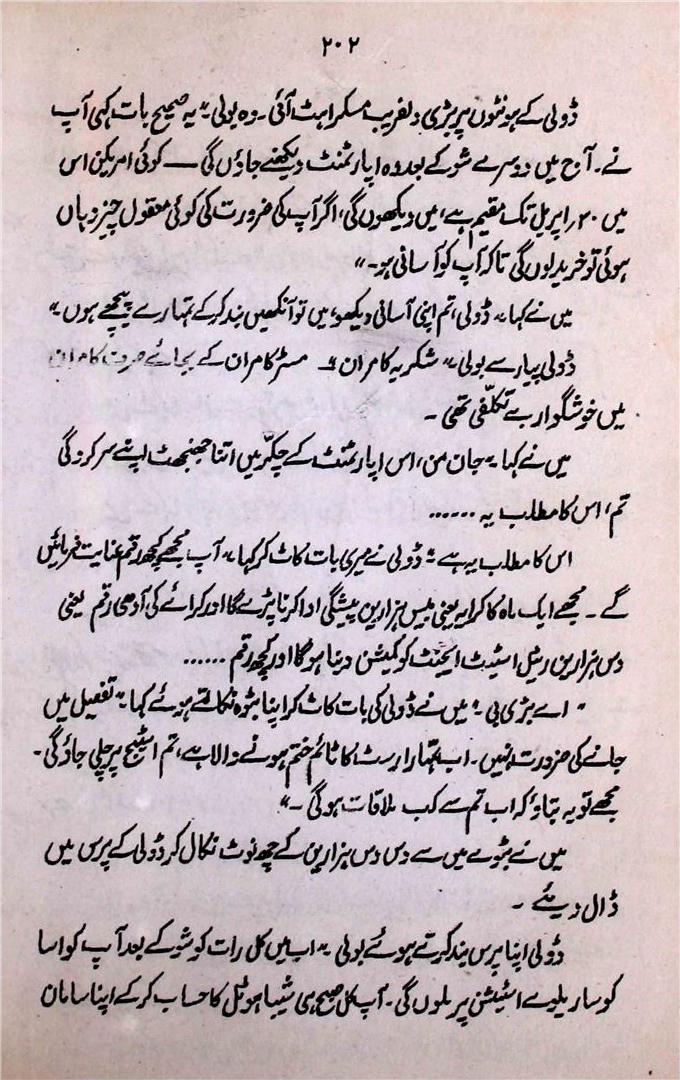 ۲۰۲
ڈولی کے ہونٹوں پر بڑی دلفریب مسکراہٹ آئی۔ وہ بولی "یہ صحیح بات کہی آپ
نے۔ آج میں دوسرے شو کے بعد وہ اپارٹمنٹ دیکھنے جاؤں گی — کوئی امریکن اس
میں ۲۰؍ اپریل تک مقیم ہے، میں دیکھوں گی، اگر آپ کی ضرورت کی کوئی معقول چیز وہاں
ہوئی تو خرید لوں گی تاکہ آپ کو آسانی ہو۔"
میں نے کہا "ڈولی، تم اپنی آسانی دیکھو، میں تو آنکھیں بند کر کے تمہارے پیچھے ہوں"
ڈولی پیار سے بولی "شکریہ کامران" مسٹر کامران کے بجائے صرف کامران
میں خوشگوار بے تکلّفی تھی۔
میں نے کہا "جان من، اس اپارٹمنٹ کے چکّر میں اتنا جھنجھٹ اپنے سر کرو گی
تم، اس کا مطلب یہ ......
اس کا مطلب یہ ہے" ڈولی نے میری بات کاٹ کر کہا "آپ مجھے کچھ رقم عنایت فرمائیں
گے۔ مجھے ایک ماہ کا کرایہ یعنی بیس ہزار ین پیشگی ادا کرنا پڑے گا اور کرائے کی آدھی رقم یعنی
دس ہزار ین ریئل اسٹیٹ ایجنٹ کو کمیشن دینا ہوگا اور کچھ رقم ......
"اے بڑی بی" میں نے ڈولی کی بات کاٹ کر اپنا بٹوہ نکالتے ہوئے کہا "تفصیل میں
جانے کی ضرورت نہیں۔ اب تمہارا رسٹ کا ٹائم ختم ہونے والا ہے، تم اسٹیج پر چلی جاؤ گی۔
مجھے تو یہ بتاؤ کہ اب تم سے کب ملاقات ہوگی۔"
میں نے بٹوے میں سے دس دس ہزار ین کے چھ نوٹ نکال کر ڈولی کے پرس میں
ڈال دیئے۔
ڈولی اپنا پرس بند کرتے ہوئے بولی "اب میں کل رات کو شو کے بعد آپ کو اسا
کوسا ریلوے اسٹیشن پر ملوں گی۔ آپ کل صبح ہی شیبا ہوٹل کا حساب کر کے اپنا سامان